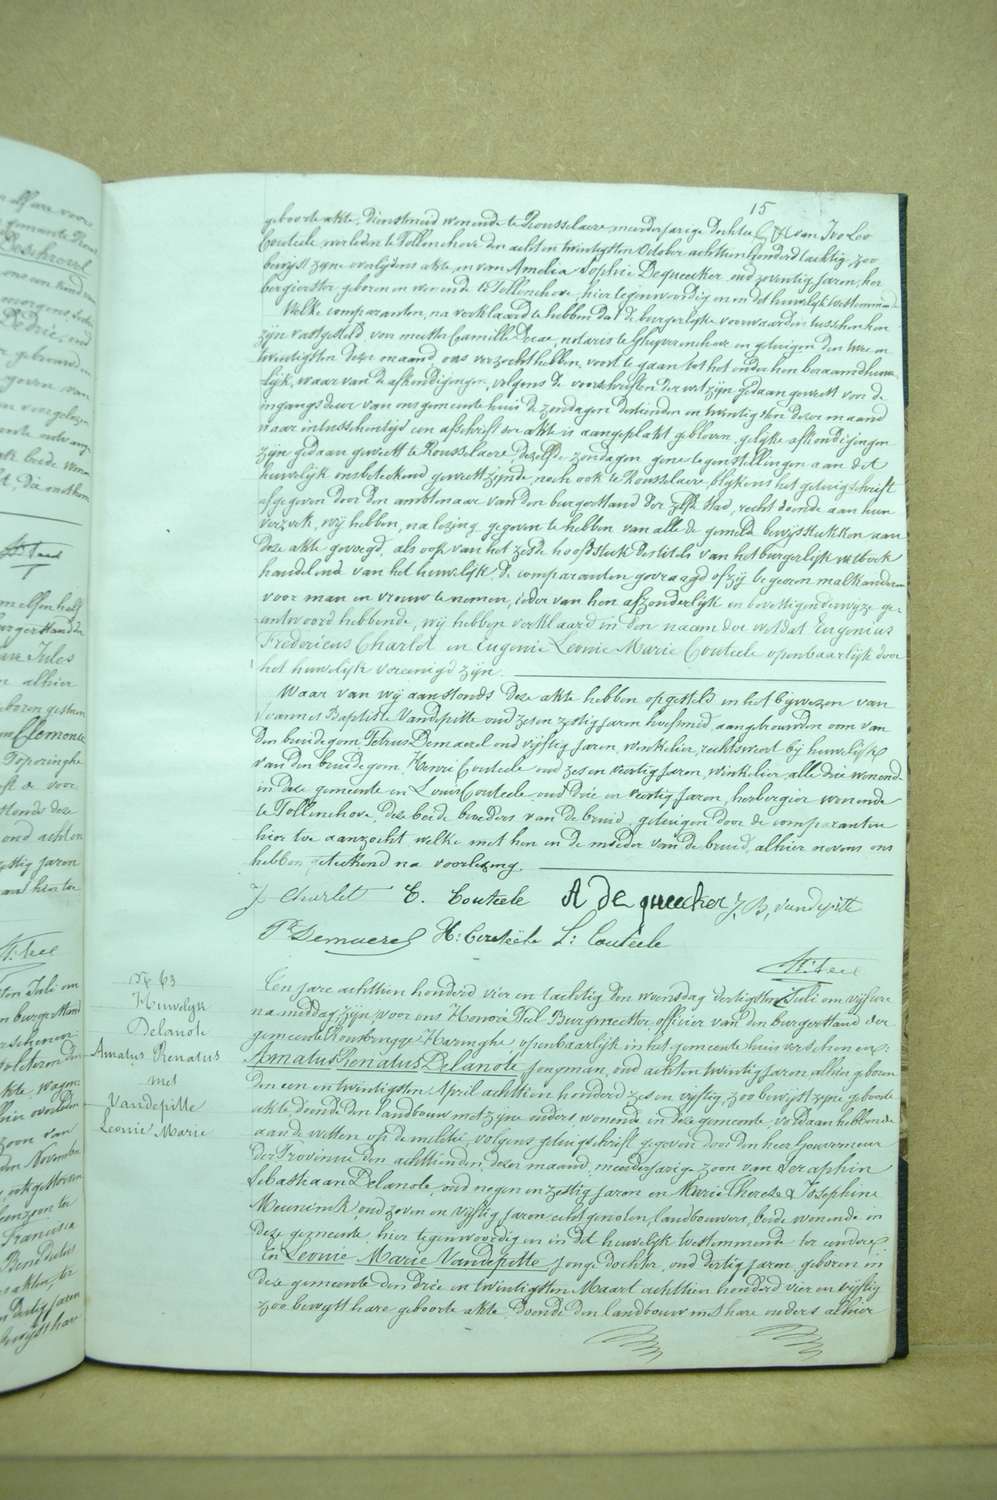 15
geboorte akte, dienstmeid wonende te Rousselaere meerderjarige dochter van Ivo Leo
Couteele overleden te Pollinchove den achtentwintigsten October achttien honderd tachtig, zoo
bewijst zyne overlydens akte, en van Amelia Sophie Dequeeker, oud zeventig jaren, her
bergierster, geboren en wonende te Pollinchove, hier tegenwoordig en in dit huwelijk toestemmende.
Welke comparanten, na verklaard te hebben dat de burgerlijke voorwaarden tusschen hen
zijn vastgesteld voor meester Camille notaris te Ghyverinchove en getuigen den twee en
twintigsten dezer maand ons verzocht hebben voort te gaan tot het onder hen beraamd huwe-
lijk, waar van de afkondigingen, volgens de voorschriften der wet zijn gedaan geweest voor de
ingangsdeur van ons gemeentehuis de zondagen dertienden en twintigsten dezer maand
waar intusschentijd een afschrift der akte is aangeplakt gebleven, gelijke afkondigingen
zijn gedaan geweest te Rousselaere, dezelfde zondagen, geene tegenstellingen aan dit
huwelijk ons beteekend geweest zijnde, noch ook te Rousselaere, blijkens het getuigschrift
afgegeven door den ambtenaar van den burgerstand der zelfde stad, recht doende aan hun
verzoek, wij hebben, na lezing gegeven te hebben van alle de gemelde bewijsstukken aan
deze akte gevoegd, als ook van het zesde hoofdstuk des titels van het burgerlijk wetboek
handelende van het huwelijk, de comparanten gevraagd of zij begeeren malkanderen
voor man en vrouw te nemen, ieder van hen afzonderlijk en bevestigenderwyze ge-
antwoord hebbende, wij hebben verklaard in den naam der wet dat Eugenius
Fredericus Charlet en Eugenie Leonie Marie Couteele openbaarlijk door
het huwelijk vereenigd zijn.
Waar van wij aanstonds deze akte hebben opgesteld in het bijwezen van
Joannes Baptiste Vandepitte oud zes en zestig jaren hoefsmid, aangetrouwden oom van
den bruidegom, Petrus Demaerel oud vijftig jaren, winkelier, rechtszweer bij huwelijk
van den bruidegom, Henri Couteele oud zes en veertig jaren, winkelier, alle drie wonende
in deze gemeente en Louis Couteele, oud drie en veertig jaren, herbergier wonende
te Pollinchove, deze beide broeders van de bruid, getuigen door de comparanten
hier toe aanzocht welke met hen en de moeder van de bruid, alhier nevens ons
hebben geteekend na voorlezing.
J Charlet E. Couteele A de queeker J. B. Vandepitte
P. Demaerel H: Couteele L: Couteele
H: Feel
No 63
Huwelijk
Delanote
Amatus Renatus
met
Vandepitte
Leonie Marie
Ten jare achttien honderd vier en tachtig den woensdag dertigsten Juli om vijf ure
na middag, zijn voor ons Honoré Feel Burgmeester officier van den burgerstand der
gemeente Rousbrugge Haringhe openbaarlijk in het gemeente huis verschenen:
Amatus Renatus Delanote jongman, oud achtentwintig jaren alhier geboren
den een en twintigsten April achttien honderd zes en vijftig, zoo bewijst zyne geboorte
akte, doende den landbouw met zijne ouders wonende in deze gemeente, voldaan hebbende
aan de wetten op de militie, volgens getuigschrift gegeven door den heer Gouverneur
der Provincie den achttienden dezer maand, meerderjarige zoon van Seraphin
Sebastiaan Delanote, oud negen en zestig jaren en Marie Thereze Josephine
Meuninck, oud zeven en vijftig jaren, echtgenoten, landbouwers, beide wonende in
deze gemeente, hier tegenwoordig en in dit huwelijk toestemmende ter eendere;
En Leonie Marie Vandepitte jonge dochter, oud dertig jaren, geboren in
deze gemeente den drie en twintigsten Maart achttien honderd vier en vijftig
zoo bewijst hare geboorte akte, doende den landbouw met hare ouders alhier